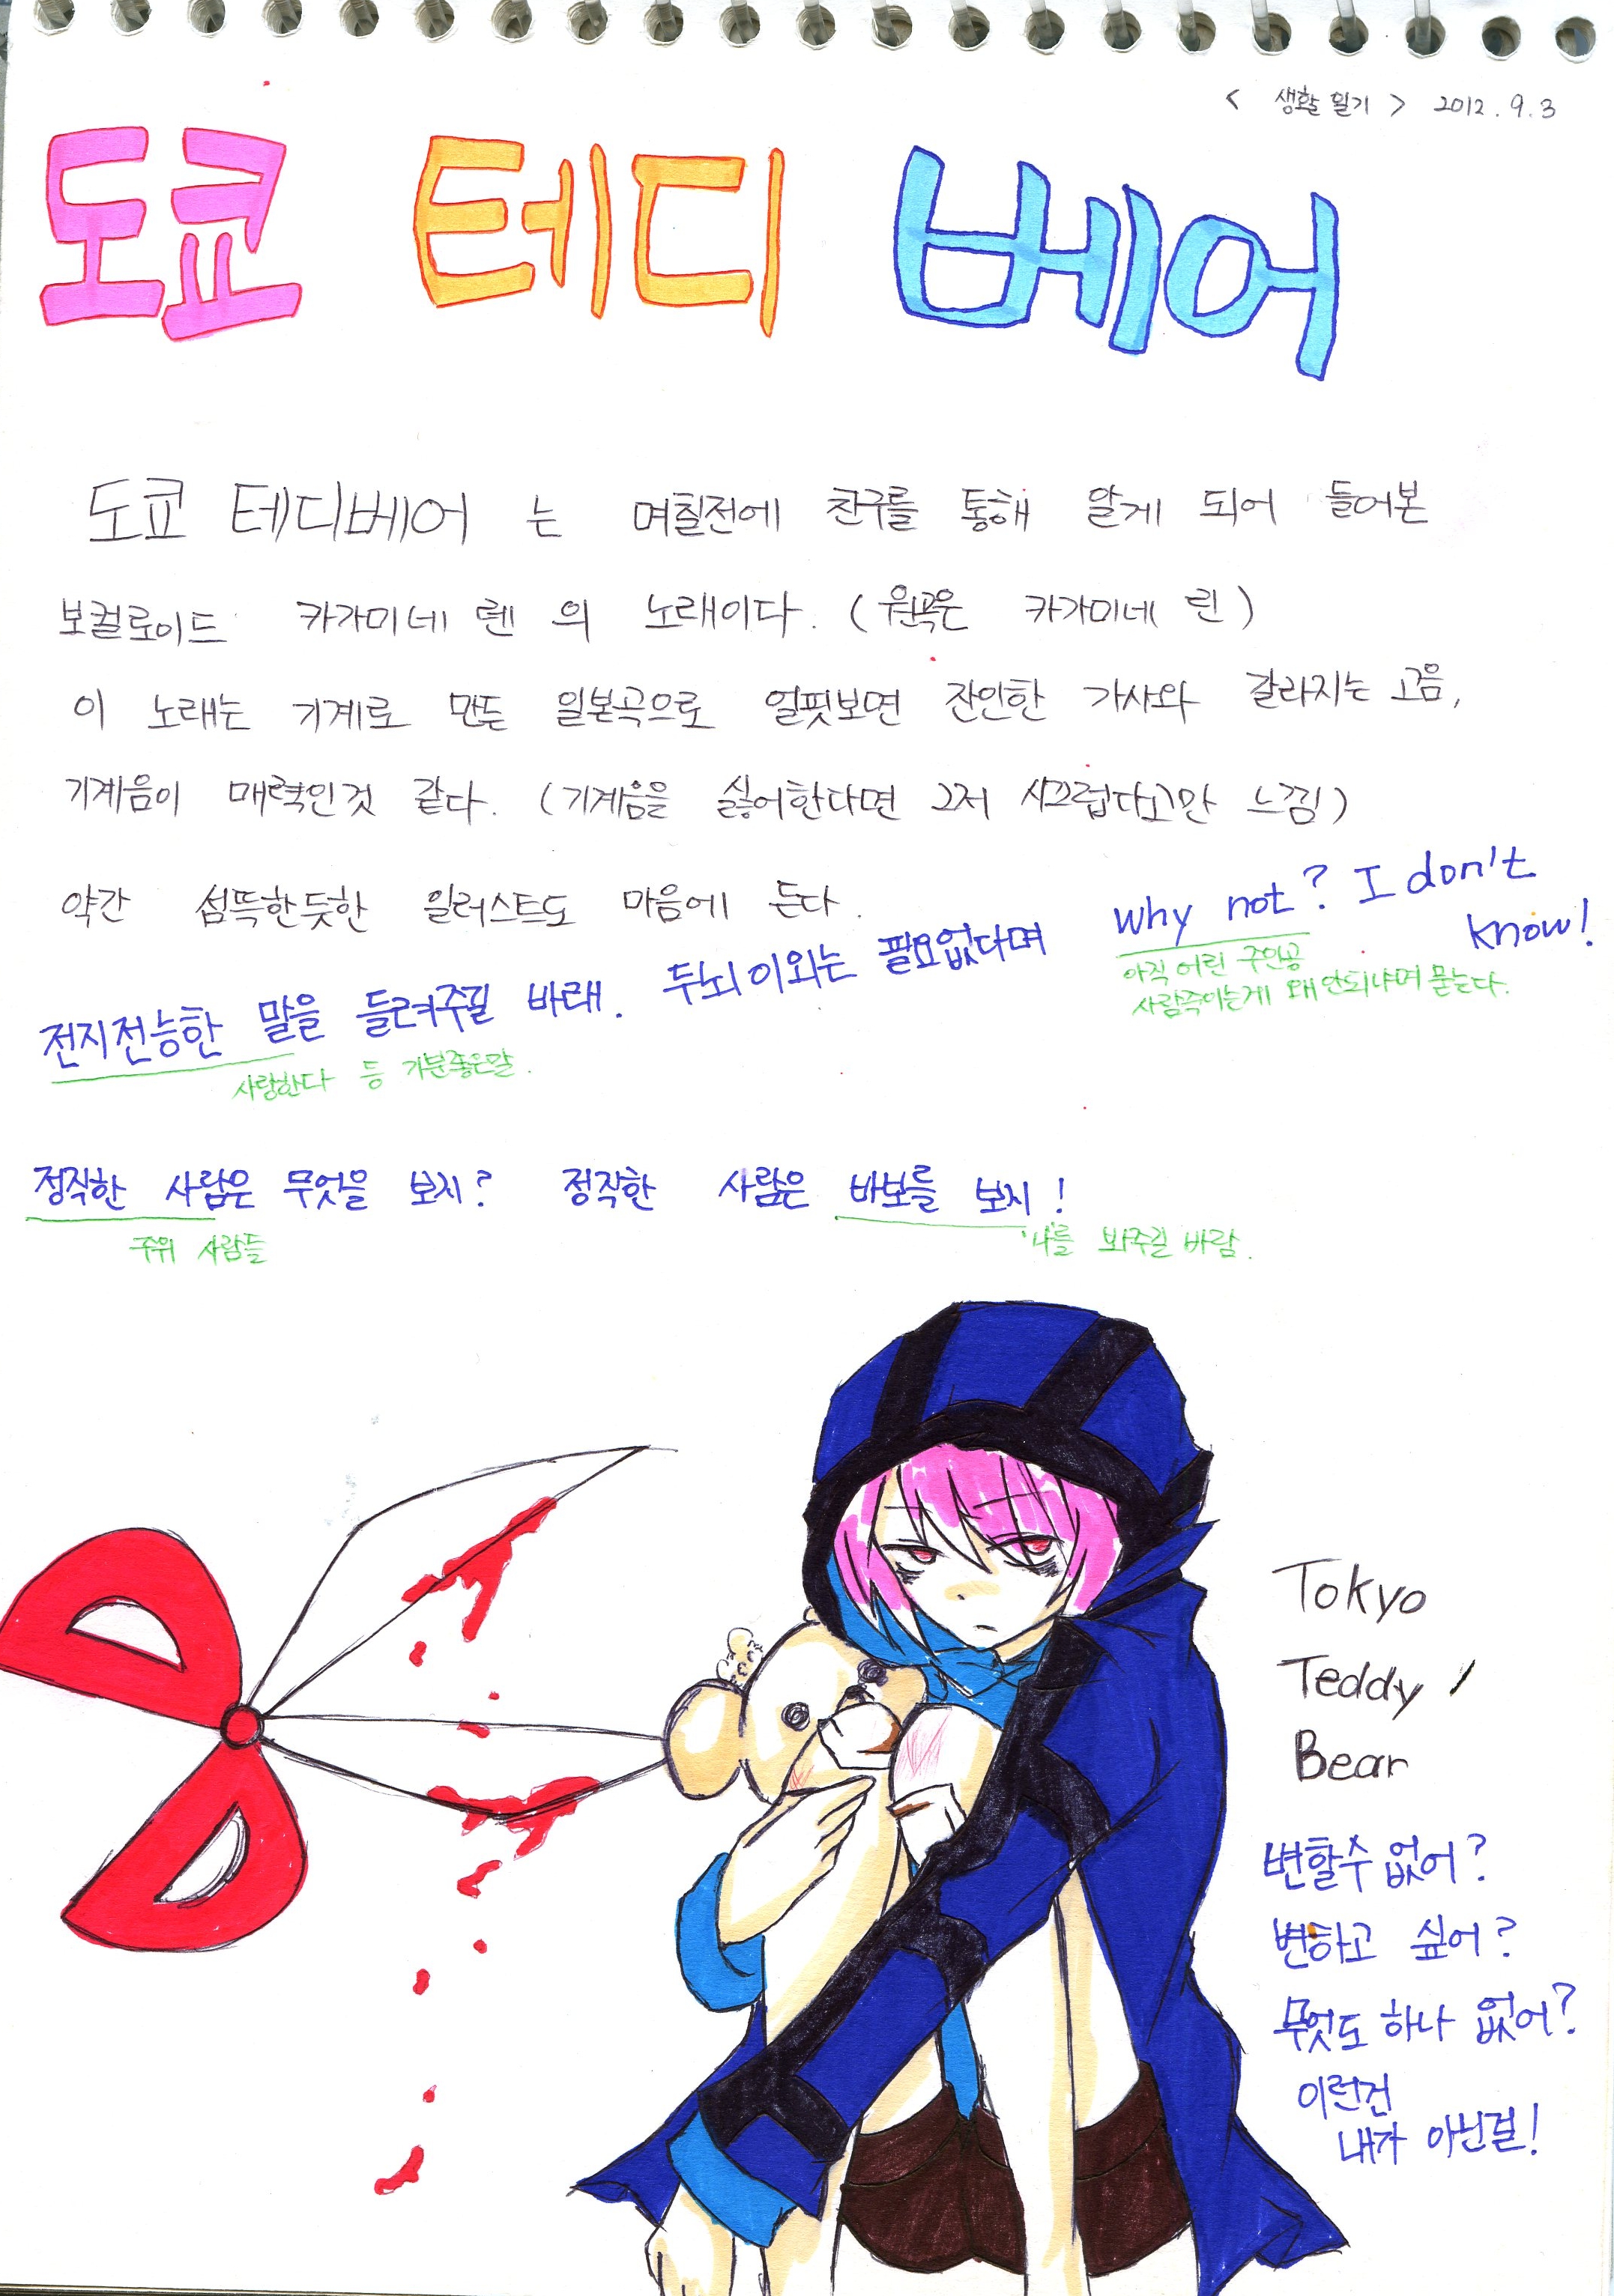 < 생활 일기 > 2012. 9. 3
도쿄 테디 베어
도쿄 테디베어 는 며칠전에 친구를 통해 알게 되어 들어본
보컬로이드 카가미네 렌 의 노래이다. (원곡은 카가미네 린)
이 노래는 기계로 만든 일본곡으로 얼핏보면 잔인한 가사와 갈라지는 고음,
기계음이 매력인것 같다. (기계음을 싫어한다면 그저 시끄럽다고만 느낌)
약간 섬뜩한듯한 일러스트도 마음에 든다.
전지전능한 말을 들려주길 바래. 두뇌이외는 필요없다며 why not? I don't
know!
아직 어린 주인공
사람죽이는게 왜 안되냐며 묻는다.
사랑한다 등 기분좋은말.
정직한 사람은 무엇을 보지? 정직한 사람은 바보를 보지!
주위 사람들
'나'를 봐주길 바람.
Tokyo
Teddy
Bear
변할수 없어?
변하고 싶어?
무엇도 하나 없어?
이런건
내가 아닌걸!